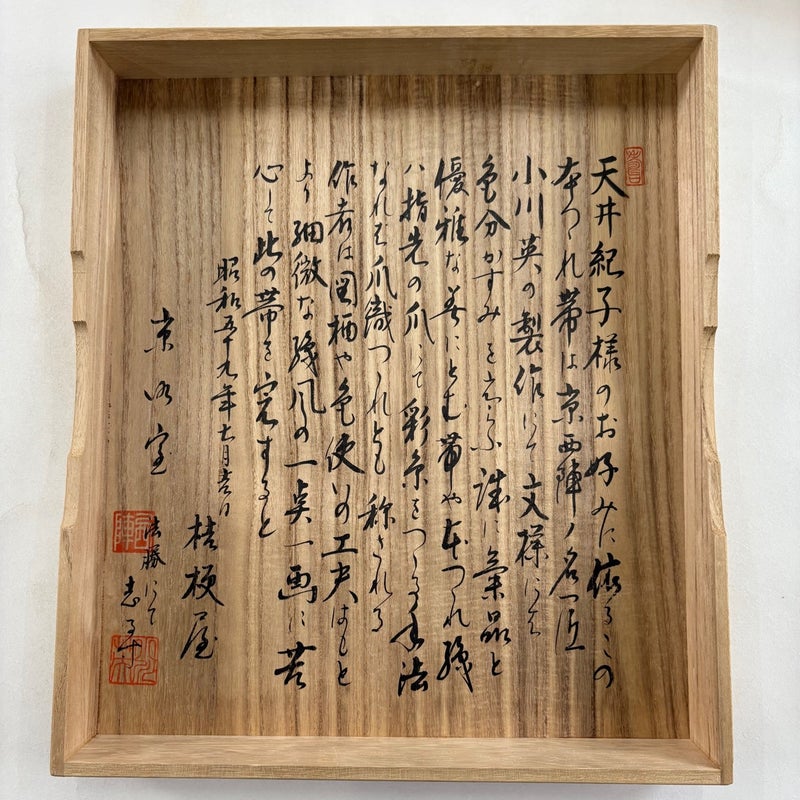 天井紀子様のお好みに依るこの
本つゞれ帯は京西陣ノ名匠
小川英の製作にて文様には
色分かすみをあしらふ誠に氣品と
優雅な美にとむ帯や本つゞれ織
ハ指先の爪にて彩糸をつゞる手法
なれば爪織つゞれとも称される
作者は図柄や色使いの工夫はもと
より細微な織風の一点一画に苦
心して此の帯を完すると
昭和五十九年七月吉日
桔梗屋
京 室
にて